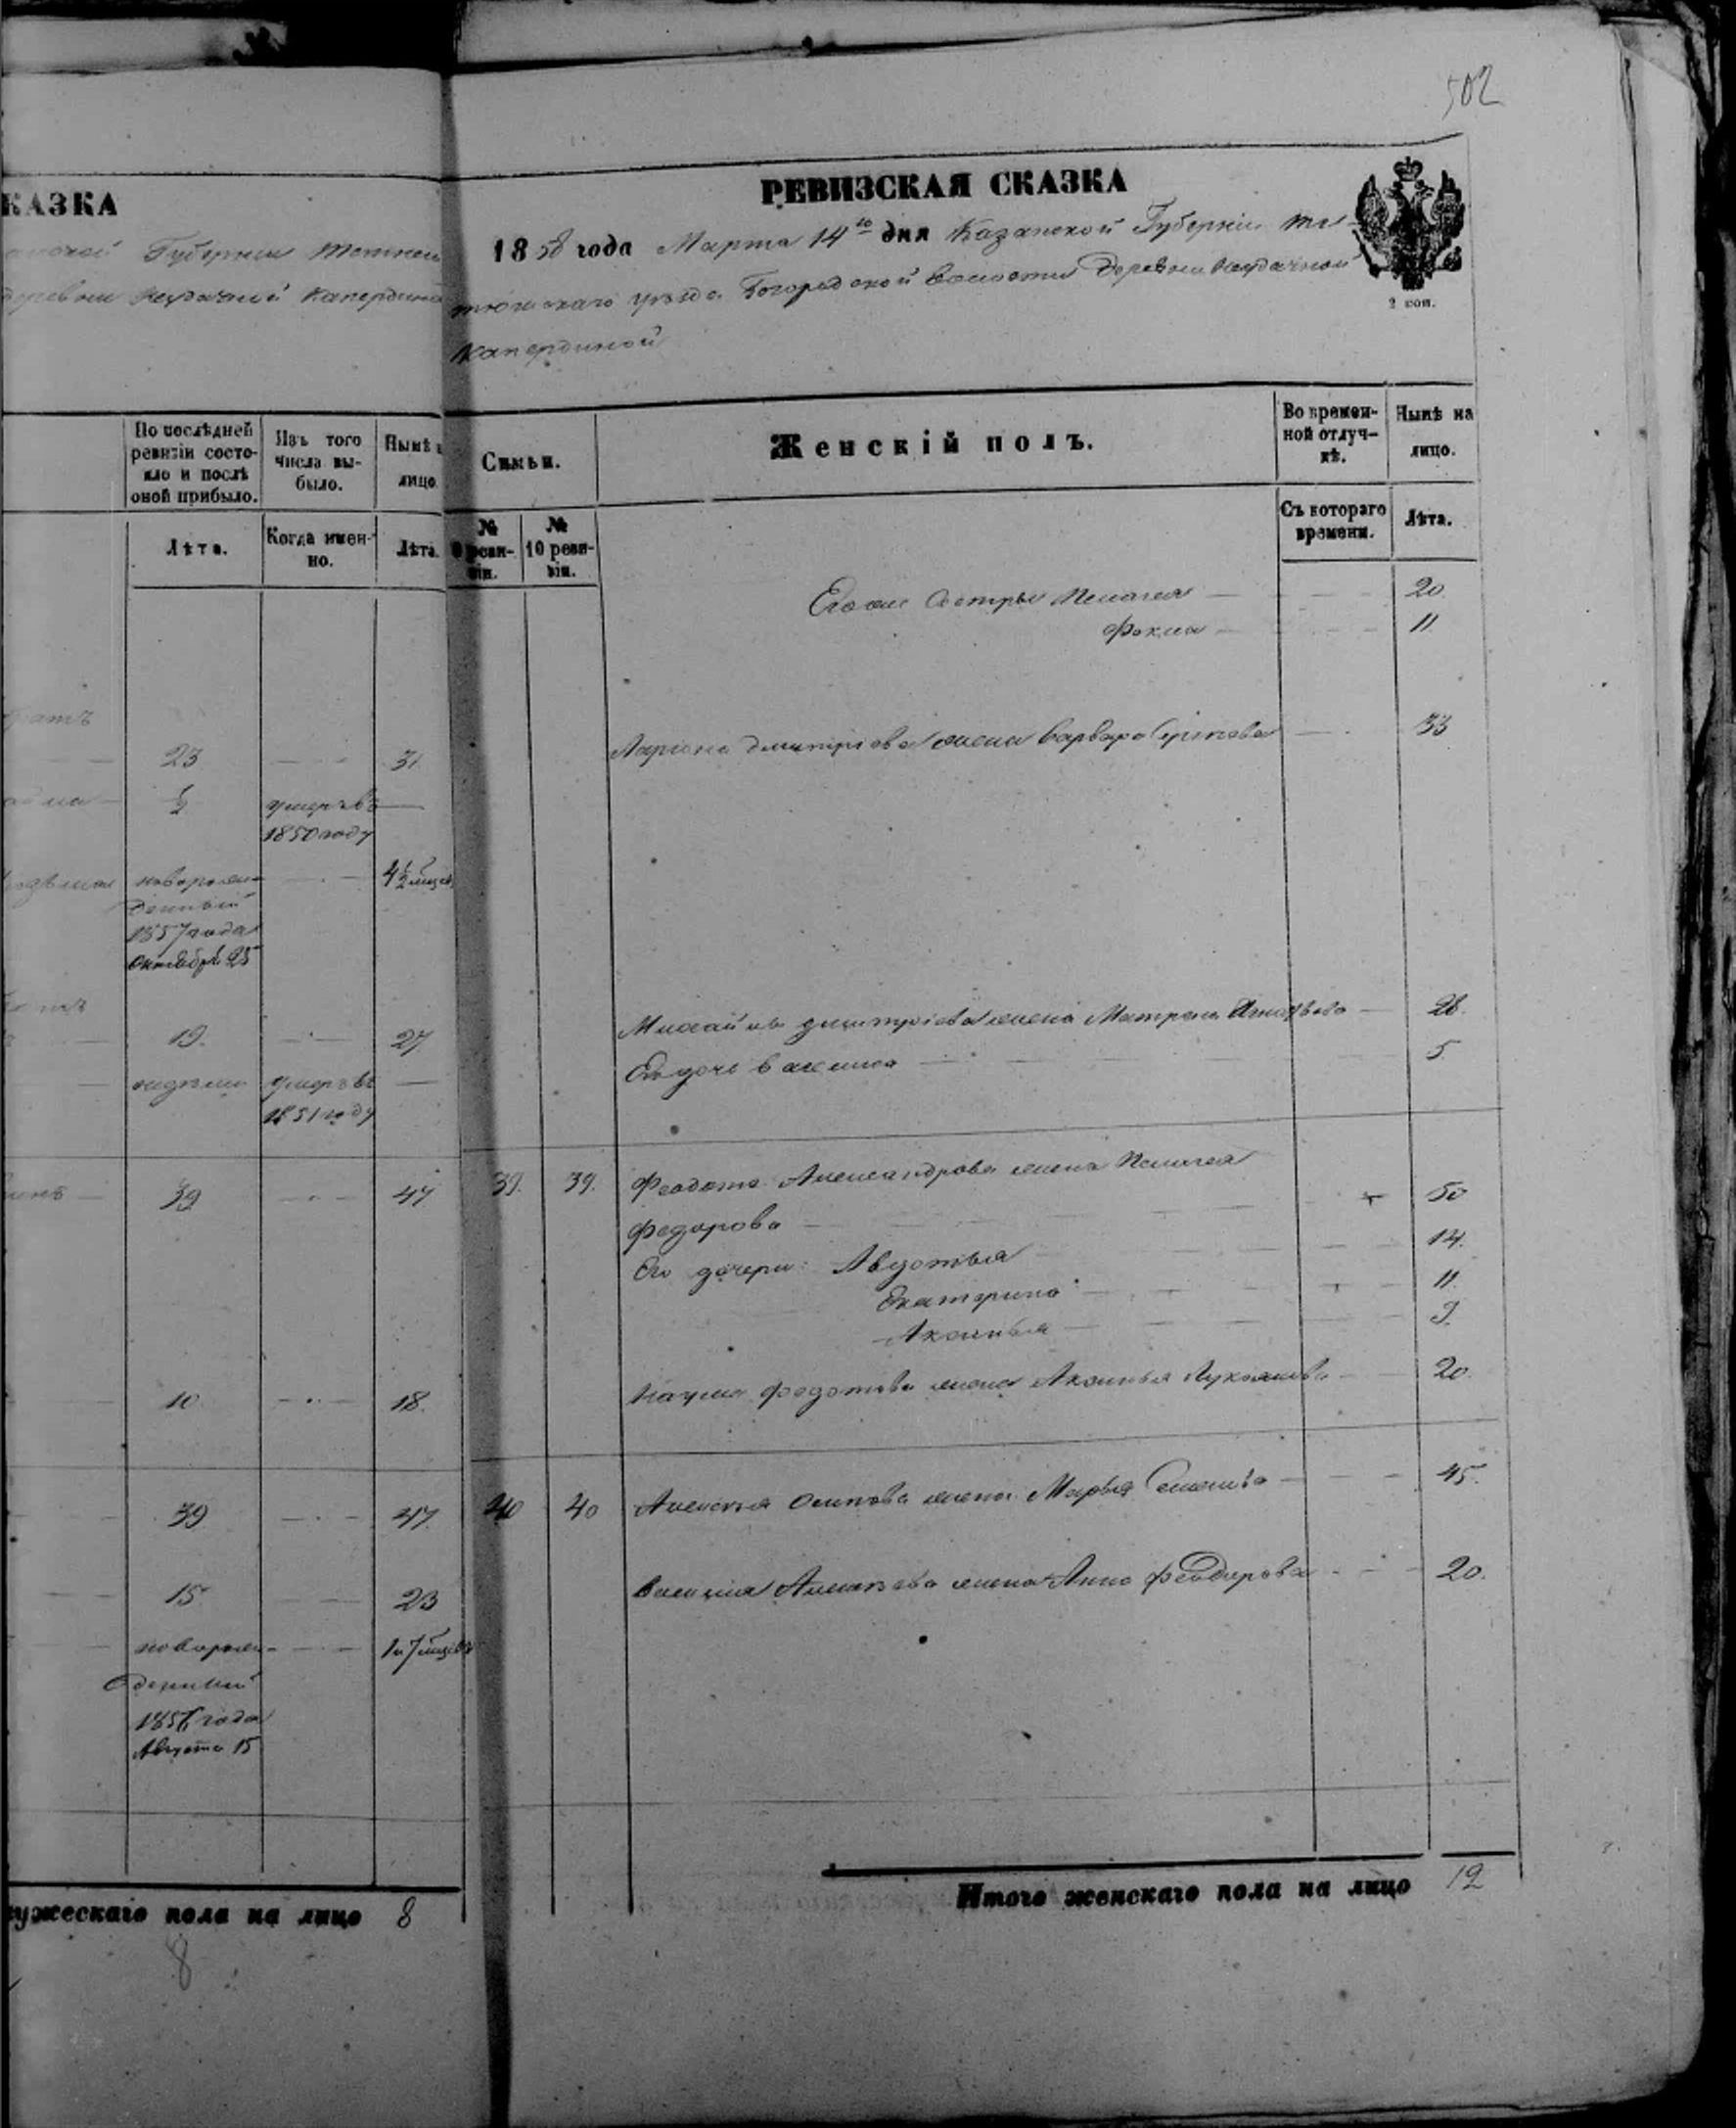 502
КАЗКА
Губернии
деревни Неудачной Капердиной
По послѣдней ревизіи состояло и послѣ оной прибыло.
Изъ того числа выбыло.
Нынѣ
лицо
Лѣта.
Когда именно.
Лѣта.
братъ
23 31
½ умеръ въ
1850 году
новорож- 4½ мѣсяц
денный
1857 года
Октября 25
19. 27
недѣли умеръ въ
1851 году
39 47
10 18.
39 47.
15 23
новорож- 1 и 7 мѣсяцевъ
денный
года
Августа 15
мужескаго пола на лицо 8
8
РЕВИЗСКАЯ СКАЗКА
1858 года Марта 14го дня Казанской Губерніи Те-
тюшскаго уѣзда Богородской волости Деревни Неудачной
Капердиной
2 коп.
Семьи.
Женскій полъ.
Во временной отлучкѣ.
Нынѣ на лицо.
№ 9 ревизіи.
№ 10 ревизіи.
Съ котораго времени.
Лѣта.
Его же Сестры Пелагея 20.
Фекла 11
Лариона Дмитріева жена Варвара 33
Михайлы Дмитріева жена Матрена 28.
Его дочь Василиса 5
39. 39. Феодота Александрова жена Пелагея
Федорова 50
Его дочери: Авдотья 14.
Екатерина 11
Аксинья 9.
Наума Федотова жена Аксинья Лукоянова 20.
40 40 Алексѣя Осипова жена Марья Семенова 45.
Василия Алексѣева жена Анна Феодорова 20.
Итого женскаго пола на лицо 12